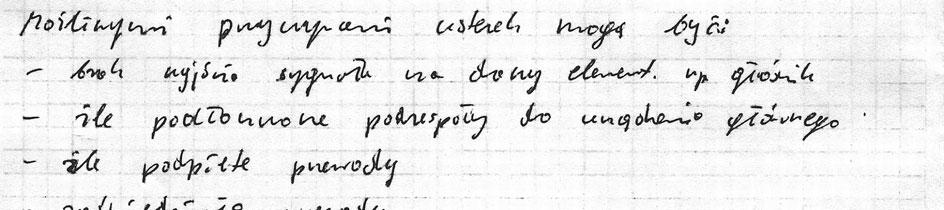 Możliwymi przyczynami usterek mogą być:
- brak wyjścia sygnału na dany element. np głośnik
- źle podłączone podzespoły do urządzenia głównego
- źle podpięte przewody